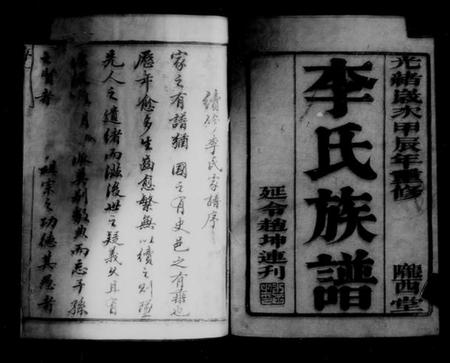 光緒歲次甲辰年重修
李氏族譜
隴西堂
延令趙坤連刊
續修李氏家譜序
家之有譜猶國之有史邑之有誌也
歷年愈多生齒愈繁無以續之則
先人之遺緒而滋後世之疑義久且有
數典而忘乎
祖宗之功德其愚者